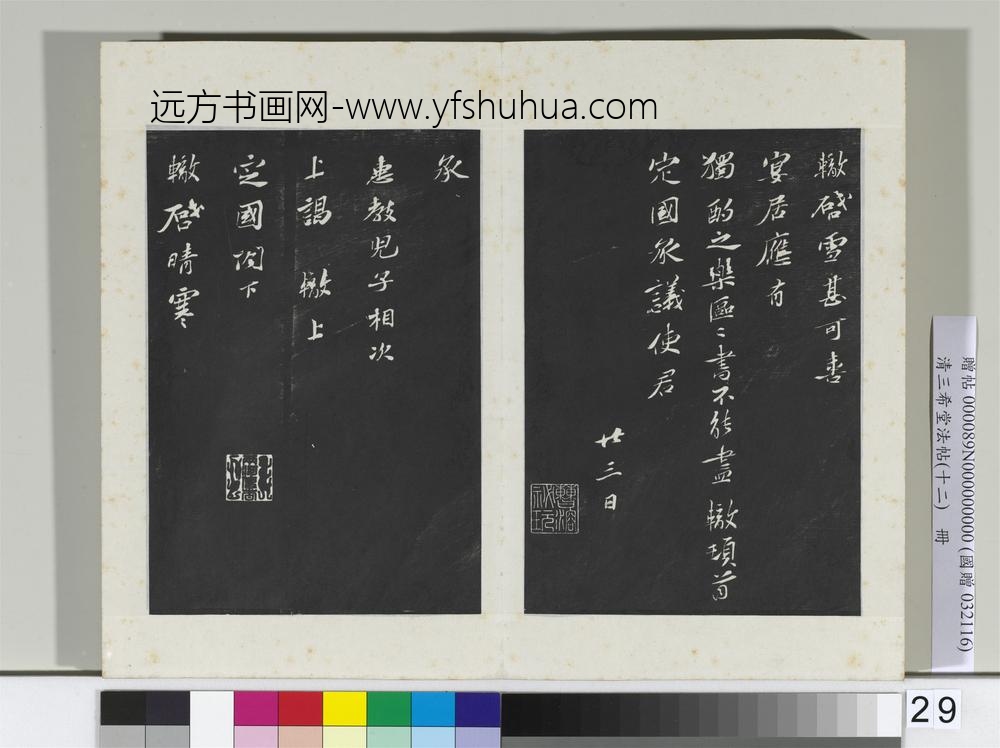 远方书画网-www.yfshuhua.com
轍啓雪甚可喜
宴居應有
獨酌之樂區〻書不能盡 轍頓首
定國承議使君
廿三日
曹溶
秘玩
承
惠教兒子相次
上謁 轍上
定國閤下
轍啓晴寒
贈帖 000089N000000000 (國贈 032116)
清三希堂法帖(十二) 冊
29